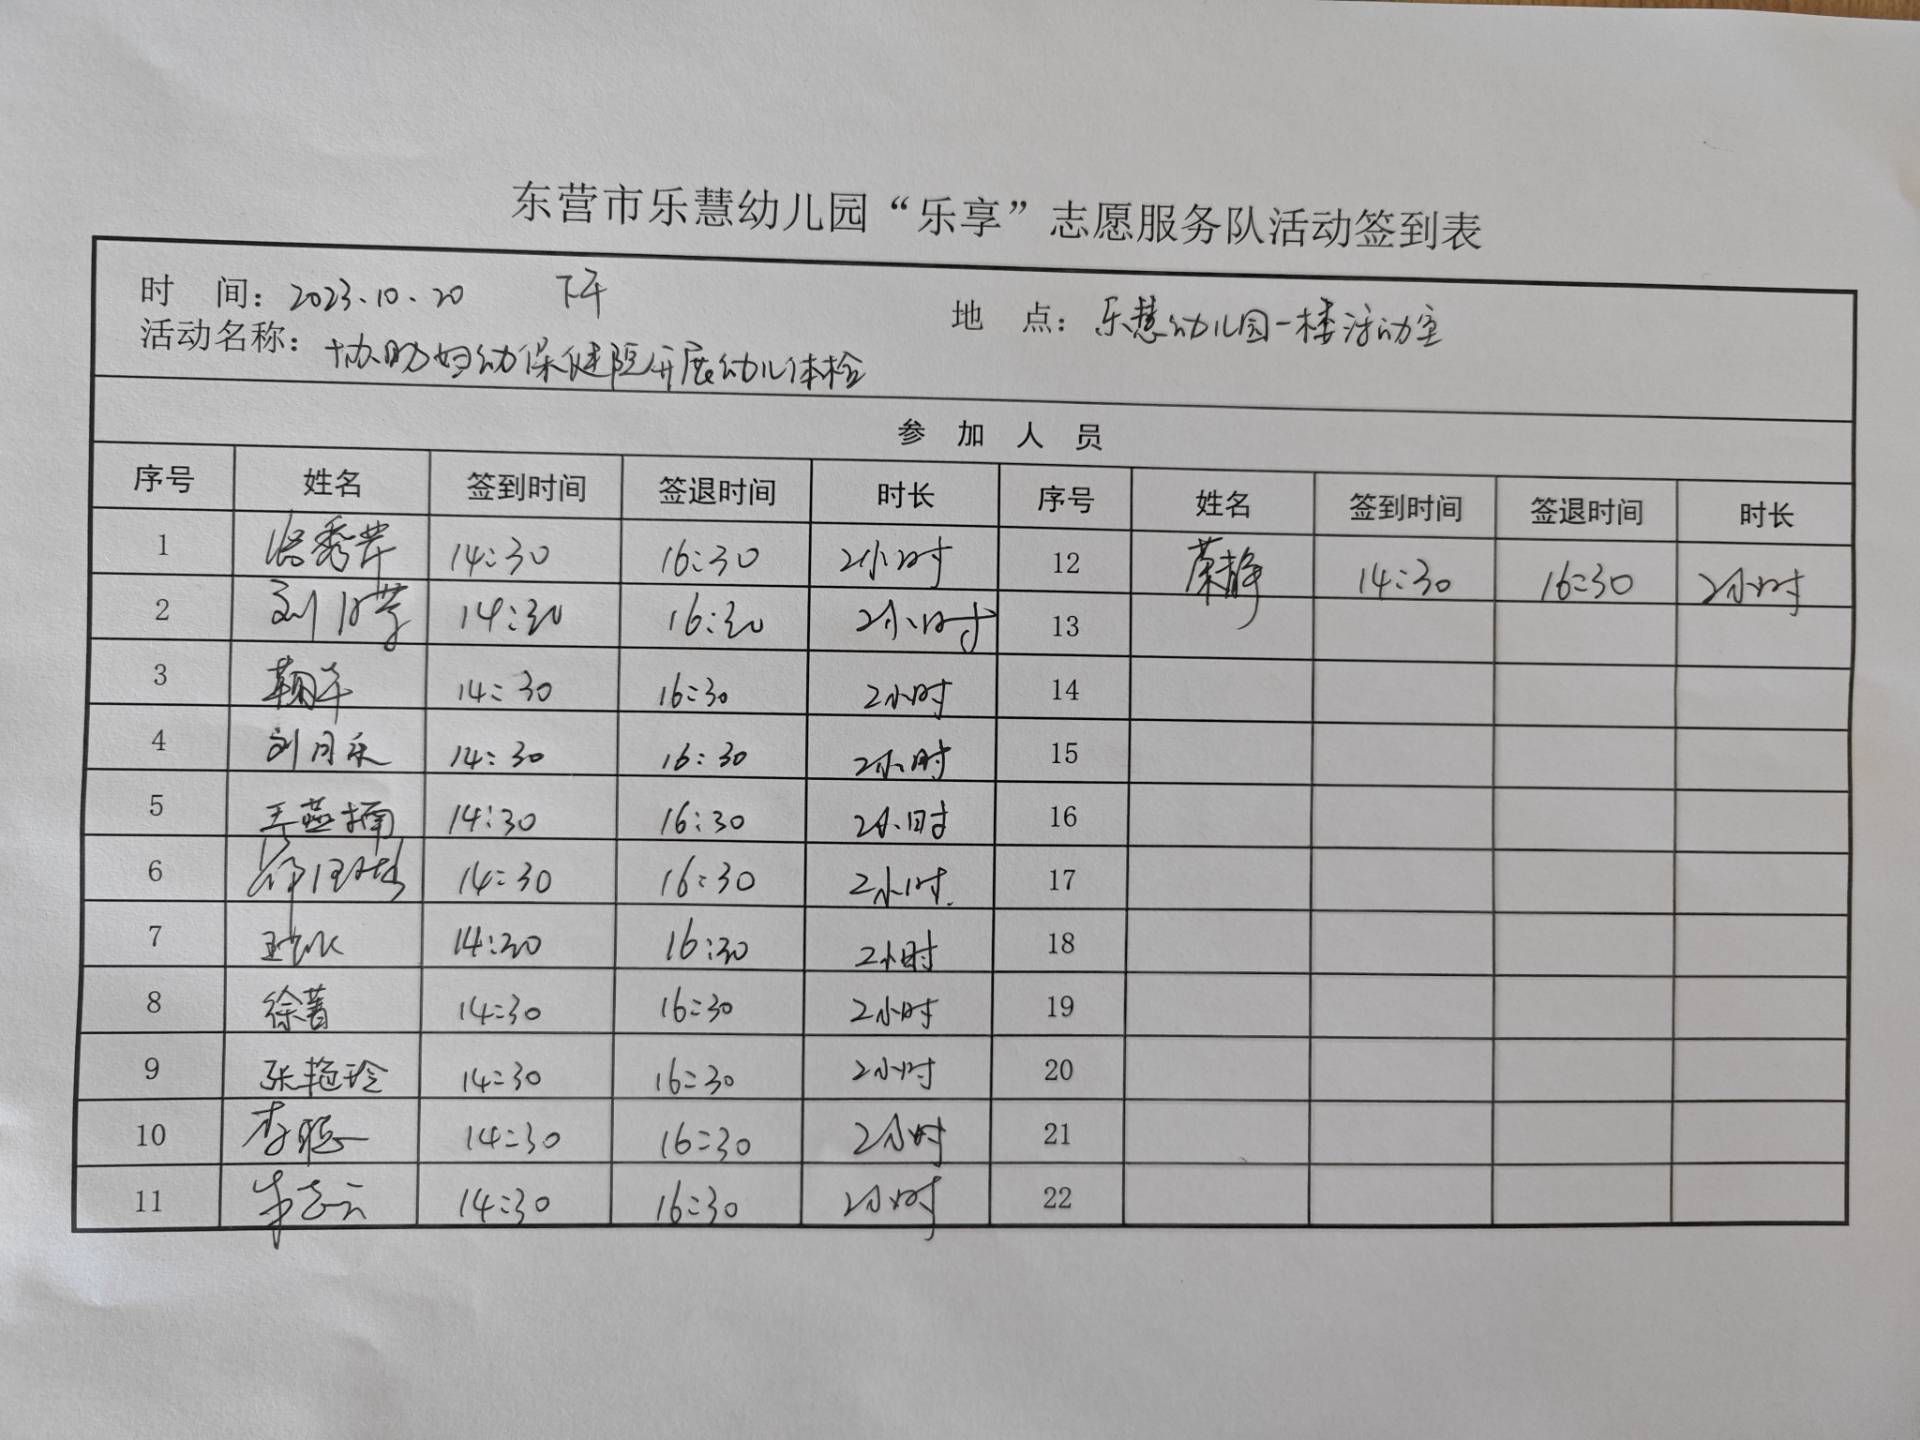 东营市乐慧幼儿园“乐享”志愿服务队活动签到表
时 间：2023.10.20 下午 地 点：乐慧幼儿园一楼活动室
活动名称：协助妇幼保健院开展幼儿体检
参 加 人 员
序号 姓名 签到时间 签退时间 时长 序号 姓名 签到时间 签退时间 时长
1 14:30 16:30 2小时 12 静 14:30 16:30 2小时
2 刘 14:30 16:30 2小时 13
3 14:30 16:30 2小时 14
4 刘月乐 14:30 16:30 2小时 15
5 王燕楠 14:30 16:30 2小时 16
6 14:30 16:30 2小时 17
7 14:30 16:30 2小时 18
8 徐菁 14:30 16:30 2小时 19
9 张艳玲 14:30 16:30 2小时 20
10 李聪 14:30 16:30 2小时 21
11 14:30 16:30 2小时 22